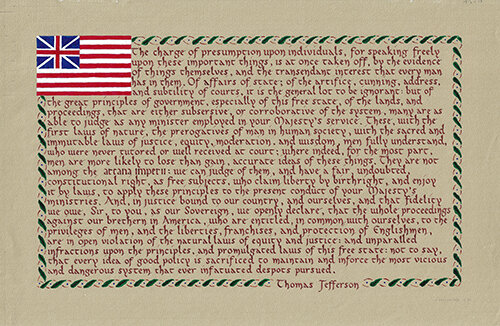 The charge of presumption upon individuals, for speaking freely
upon these important things, is at once taken off, by the evidence
of things themselves, and the transcendant interest that every man
has in them. Of affairs of state; of the artifice, cunning, address,
and subtility of courts, it is the general lot to be ignorant: but of
the great principles of government, especially of this free state, of the lands, and
proceedings, that are either subversive, or corroborative of the system, many are as
able to judge as any minister employed in your Majesty's service. These, with the
first laws of nature, the prerogatives of man in human society, with the sacred and
immutable laws of justice, equity, moderation, and wisdom, men fully understand,
who were never tutored or well received at court; where indeed, for the most part,
men are more likely to lose than gain, accurate ideas of these things. They are not
among the arcana imperii: we can judge of them, and have a fair, undoubted,
constitutional right, as free subjects, who claim liberty by birthright, and enjoy
it by laws, to apply these principles to the present conduct of your Majesty's
ministries. And, in justice bound to our country, and ourselves, and that fidelity
we owe, Sir, to you, as our Sovereign, we openly declare, that the whole proceedings
against our brethern in America, who are entitled, in common with ourselves, to the
privileges of men, and the liberties, franchises, and protection of Englishmen,
are in open violation of the natural laws of equity and justice: and unparalled
infractions upon the principles, and promulgated laws of this free state: not to say,
that every idea of good policy is sacrificed to maintain and inforce the most vicious
and dangerous system that ever infatuated despots pursued.
Thomas Jefferson